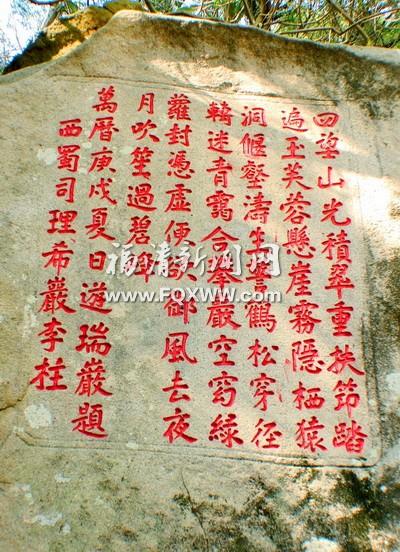 四望山光積翠重扶筇踏
遍玉芙蓉懸崖霧隱栖猿
洞偃壑濤生警鶴松穿徑
轉迷青靄合叅巖空窈綠
蘿封憑虛便欲御風去夜
月吹笙過碧峰
萬曆庚戌夏日遊瑞巖題
西蜀司理希巖李柱
福清新聞网
www.FQXWW.com